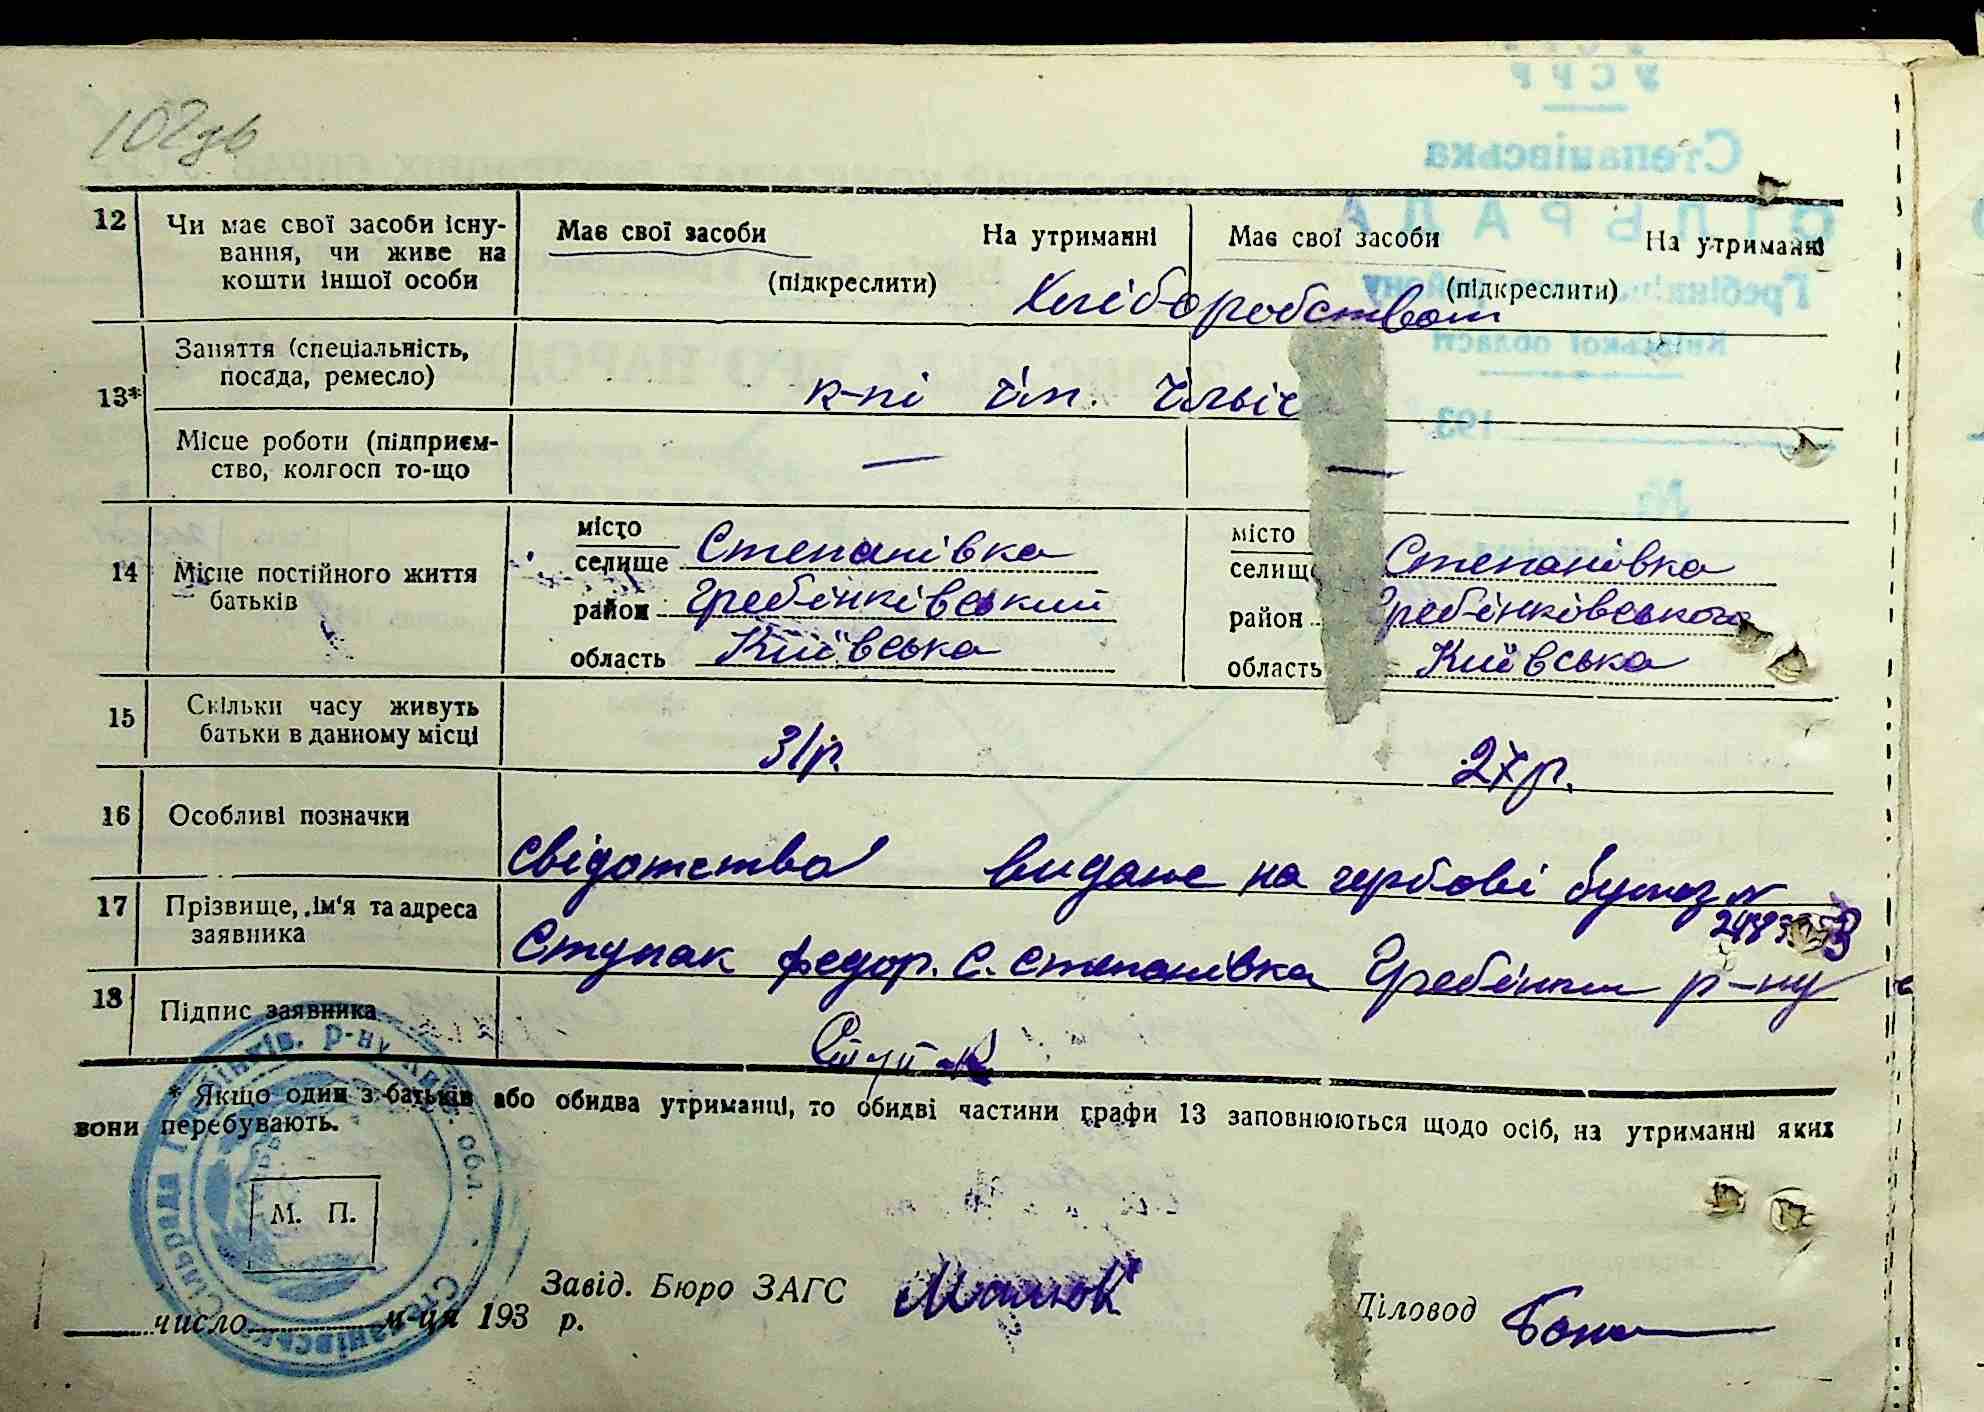 102зв
12
Чи має свої засоби існу-
вання, чи живе на
кошти іншої особи
Має свої засоби На утриманні
(підкреслити)
Має свої засоби На утриманні
(підкреслити)
Хліборобством
13*
Заняття (спеціальність,
посада, ремесло)
к-пі ім. Ілліч
Місце роботи (підприєм-
ство, колгосп то-що
— —
14
Місце постійного життя
батьків
місто
селище Степанівка
район Гребінківський
область Київська
місто
селище Степанівка
район Гребінківського
область Київська
15
Скільки часу живуть
батьки в данному місці
31р. 27р.
16
Особливі позначки
свідотство видане на гербові бумаз №
17
Прізвище, ім'я та адреса
заявника
Ступак федор. с. степанівка Гребінки р-ну
18
Підпис заявника
* Якщо один з батьків або обидва утриманці, то обидві частини графи 13 заповнюються щодо осіб, на утриманні яких
вони перебувають.
М. П.
Завід. Бюро ЗАГС
Діловод
число м-ця 193 р.
УСРР
Степанівська
СІЛЬРАДА
Київської області
193
№